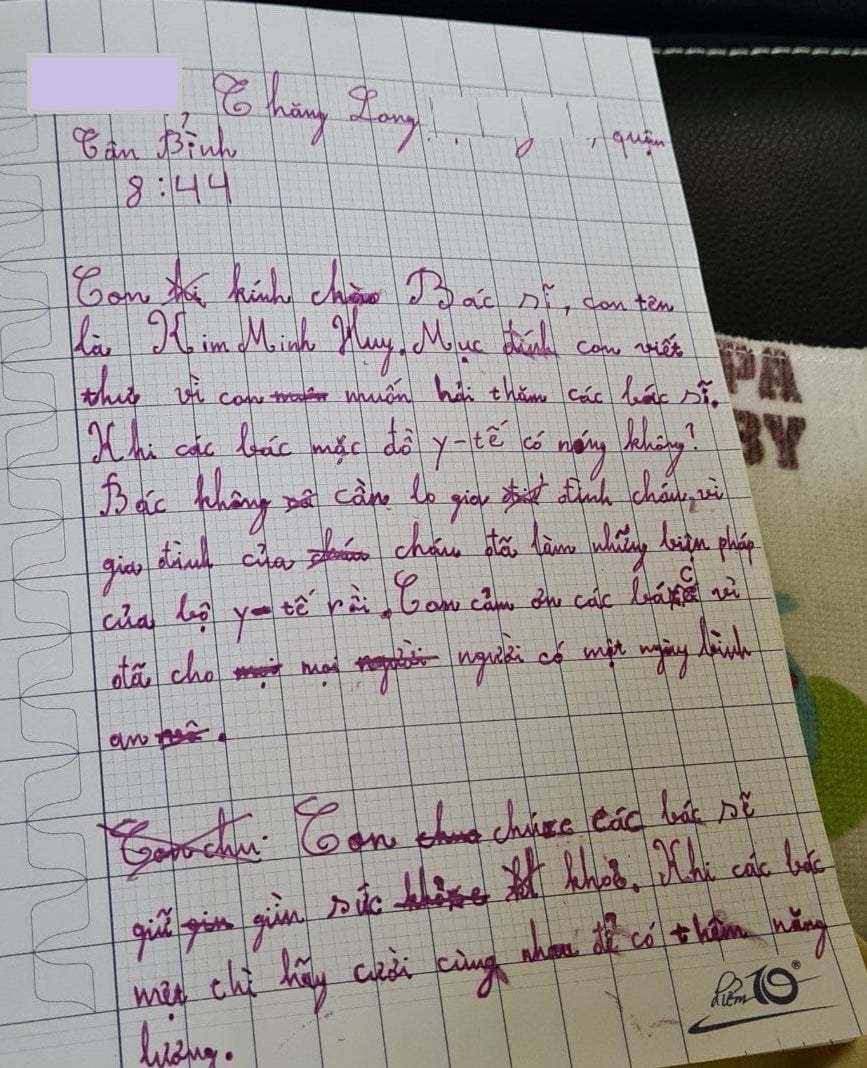 Thăng Long , quận
Tân Bình
8:44
Con kính chào Bác sĩ, con tên
là Kim Minh Huy. Mục đính con viết
thư vì con muốn hỏi thăm các bác sĩ.
Khi các bác mặc đồ y-tế có nóng không?
Bác không cần lo gia đình cháu, vì
gia đình của cháu đã làm những biện pháp
của bộ y-tế rồi. Con cảm ơn các bác vì
đã cho mọi người có một ngày bình
an.
Con chúc các bác sĩ
giữ gìn sức khỏe. Khi các bác
mệt thì hãy cười cùng nhau để có thêm năng
lượng.
Điểm 10
PA
BY